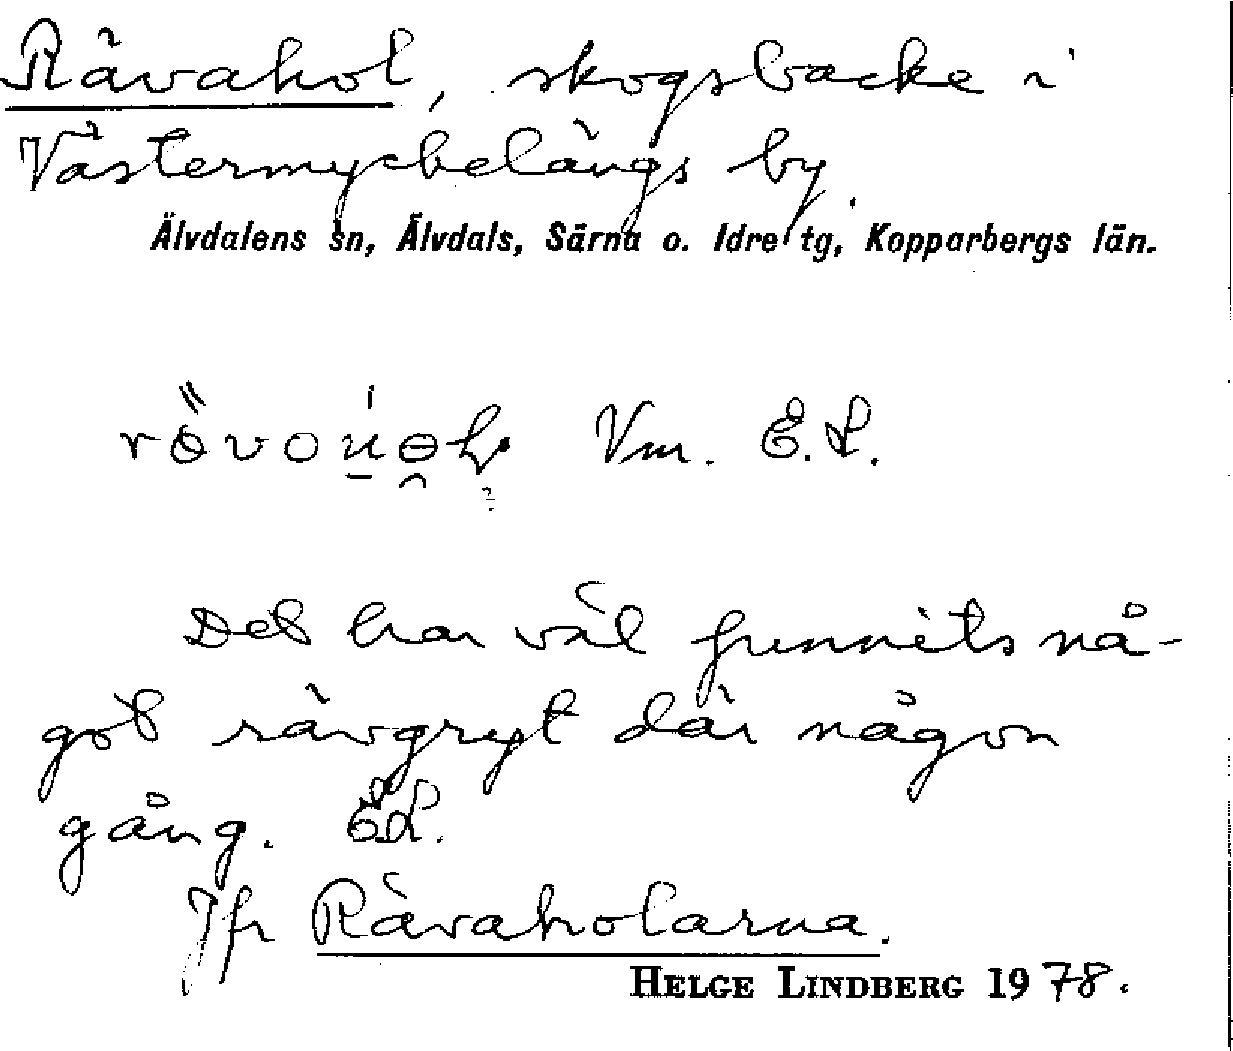 Rävahol, skogsbacke i
Västermyckelängs by.
Älvdalens sn, Älvdals, Särna o. Idre tg, Kopparbergs län.
Vm. E.L.
Det har väl funnits nå-
got rävgryt där någon
gång. E.L.
Jfr Rävaholarna.
HELGE LINDBERG 1978.